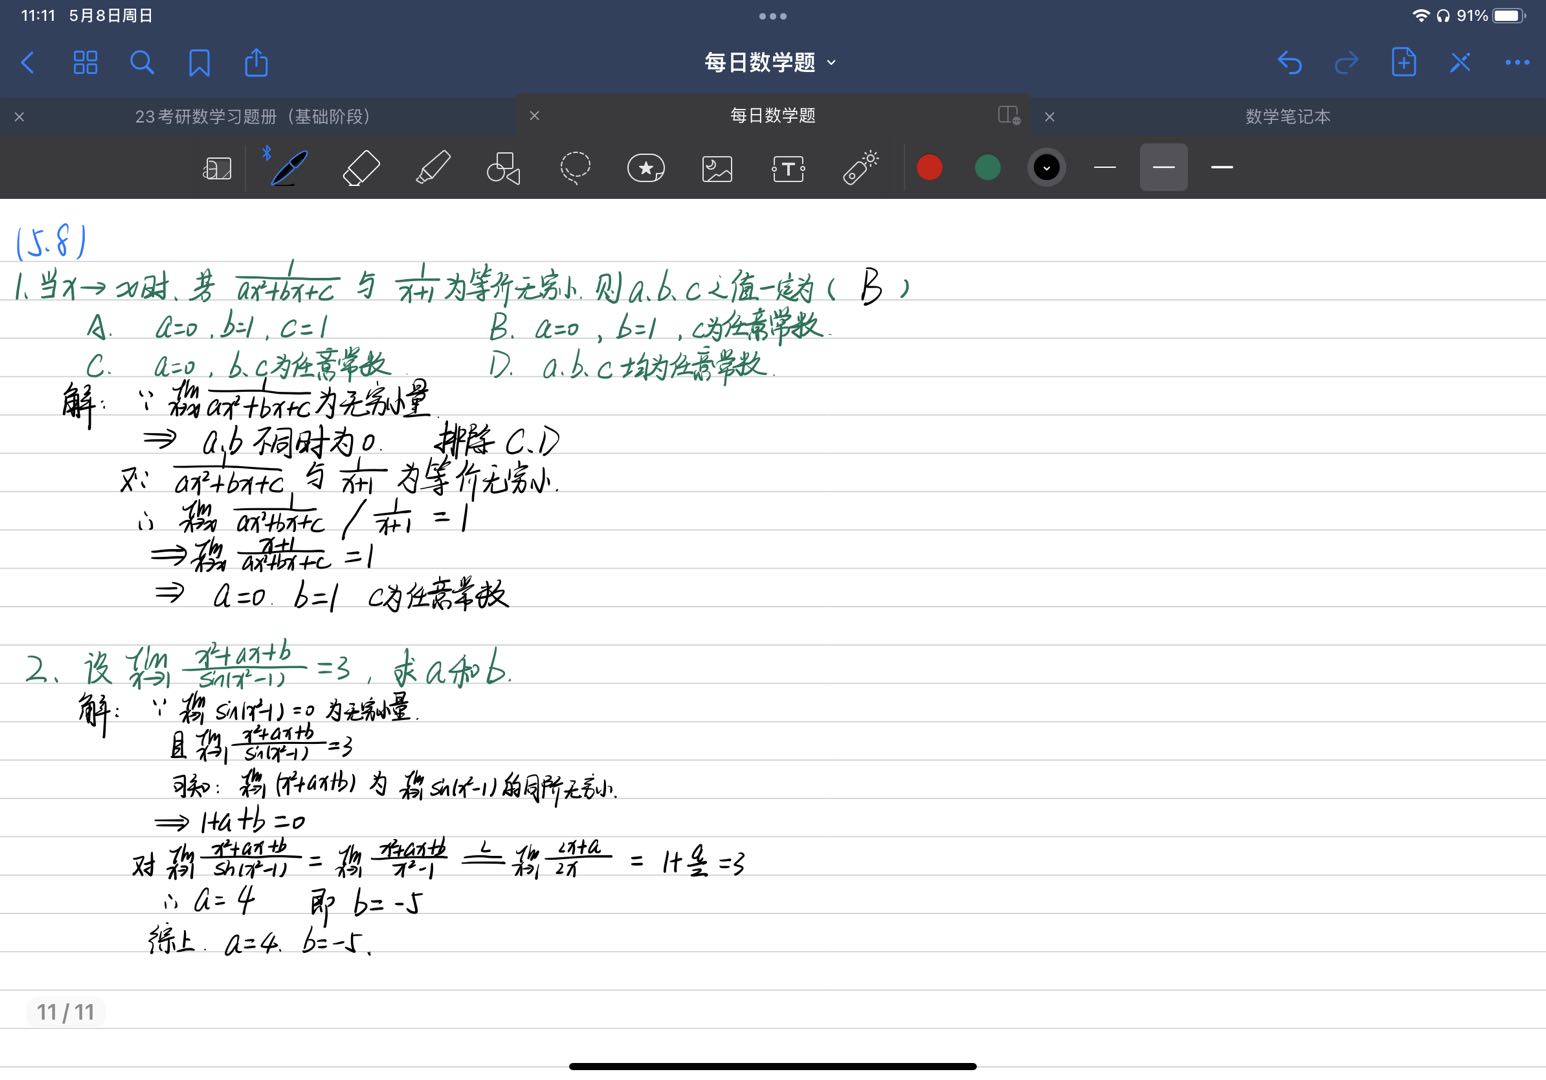 11:11 5月8日周日
91%
每日数学题
23考研数学习题册（基础阶段）
每日数学题
数学笔记本
(5.8)
1.当x→∞时、若 1/(ax²+bx+c) 与 1/(x+1) 为等价无穷小.则a、b、c之值一定为( B )
A. a=0,b=1,c=1 B. a=0,b=1,c为任意常数.
C. a=0,b、c为任意常数. D. a.b.c均为任意常数.
解: ∵ lim x→∞ 1/(ax²+bx+c) 为无穷小量.
⇒ a,b不同时为0. 排除C.D
又∵ 1/(ax²+bx+c) 与 1/(x+1) 为等价无穷小.
∴ lim x→∞ 1/(ax²+bx+c) / 1/(x+1) = 1
⇒ lim x→∞ (x+1)/(ax²+bx+c) = 1
⇒ a=0. b=1 c为任意常数
2、设 lim x→1 (x²+ax+b)/sin(x²-1) =3,求a和b.
解: ∵ lim x→1 sin(x²-1)=0 为无穷小量.
且 lim x→1 (x²+ax+b)/sin(x²-1) =3
可知: lim x→1 (x²+ax+b) 为 lim x→1 sin(x²-1) 的同阶无穷小.
⇒ 1+a+b=0
对 lim x→1 (x²+ax+b)/sin(x²-1) = lim x→1 (x²+ax+b)/(x²-1) =L= lim x→1 (2x+a)/2x = 1+a/2 =3
∴ a=4 即 b=-5
综上. a=4、b=-5、
11 / 11